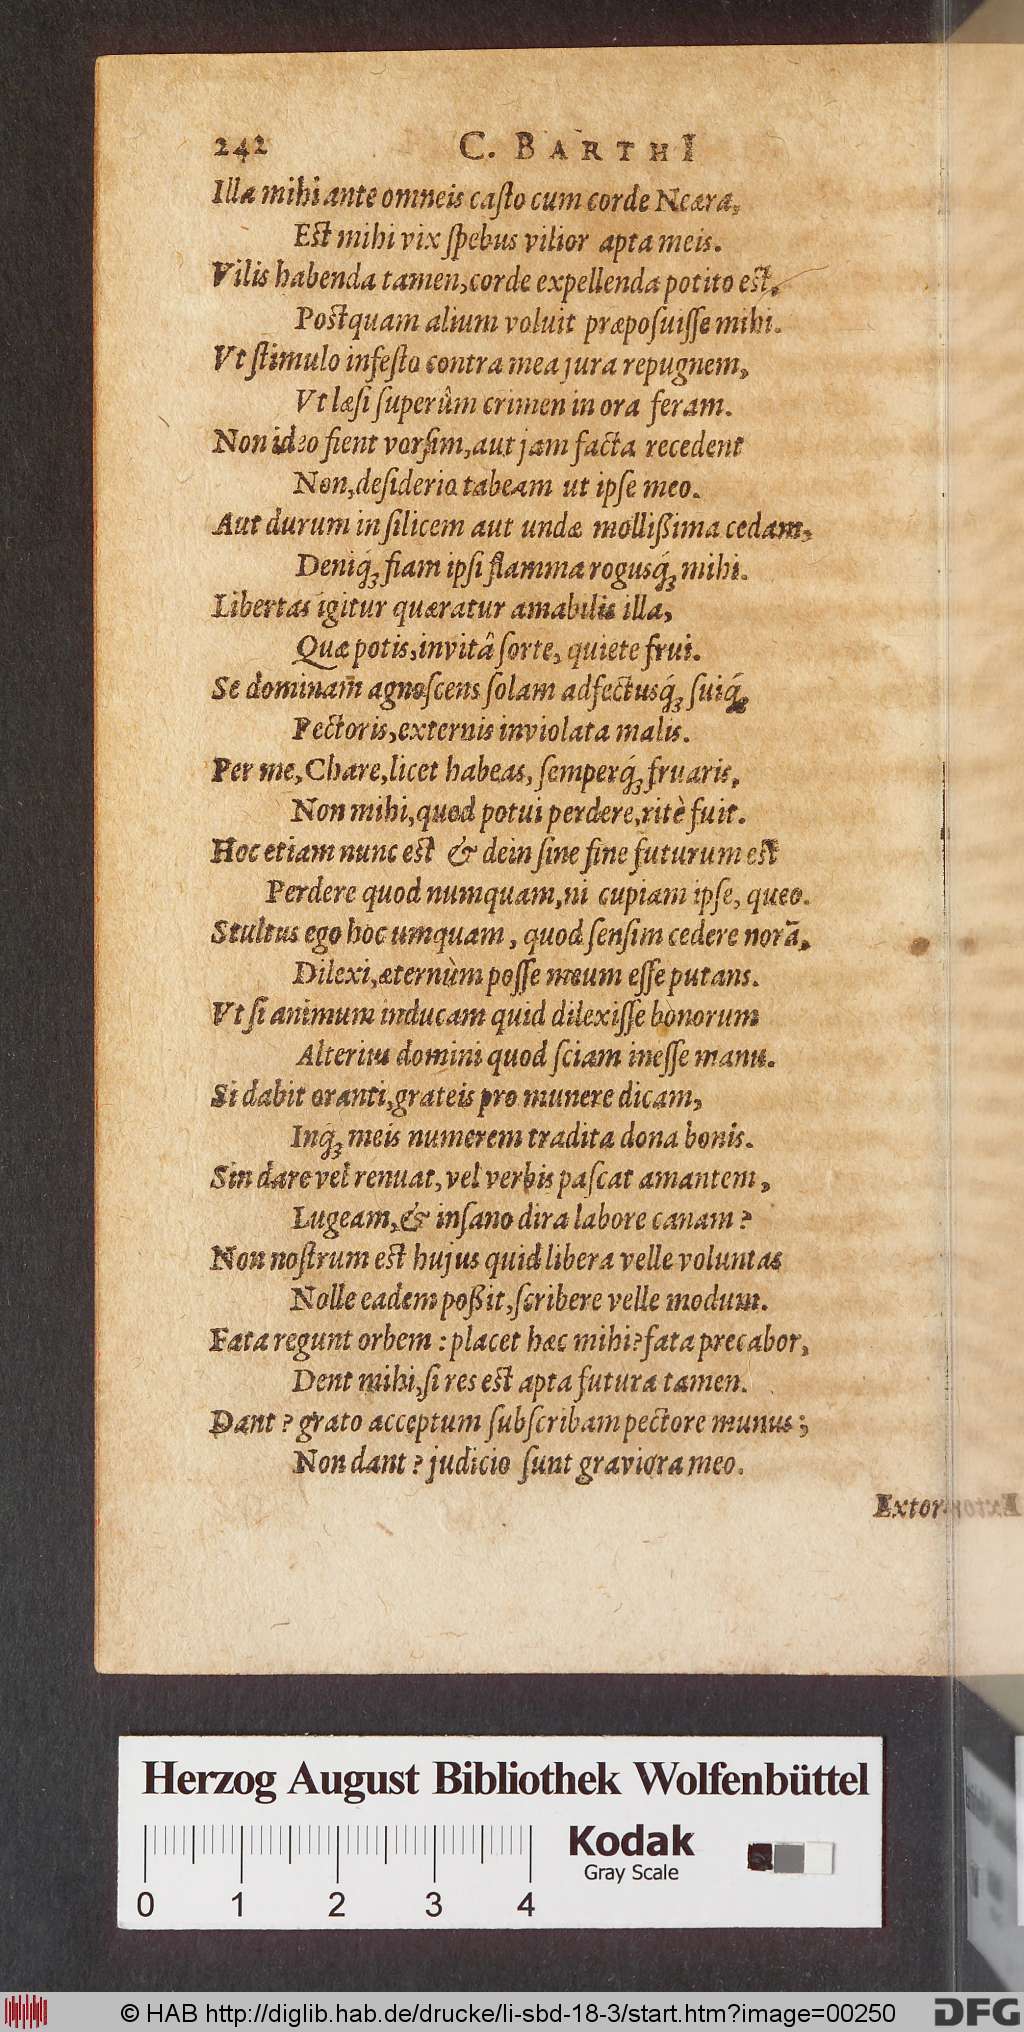 242 C. BARTHI
Illa mihi ante omneis caſto cum corde Neæra,
Eſt mihi vix ſpebus vilior apta meis.
Vilis habenda tamen, corde expellenda potito eſt,
Poſtquam alium voluit præpoſuiſſe mihi.
Vt ſtimulo infeſto contra mea jura repugnem,
Vt læſi ſuperûm crimen in ora feram.
Non ideo fient vorſim, aut jam facta recedent
Non, deſiderio tabeam ut ipſe meo.
Aut durum in ſilicem aut undæ molliſsima cedam,
Deniq́ꝫ fiam ipſi flamma rogusq́ꝫ mihi.
Libertas igitur quæratur amabilis illa,
Quæ potis, invitâ ſorte, quiete frui.
Se dominam̄ agnoſcens ſolam adfectusq́ꝫ ſuiq́ꝫ
Pectoris, externis inviolata malis.
Per me, Chare, licet habeas, ſemperq́ꝫ fruaris,
Non mihi, quod potui perdere, ritè fuit.
Hoc etiam nunc eſt & dein ſine fine futurum eſt
Perdere quod numquam, ni cupiam ipſe, queo.
Stultus ego hoc umquam, quod ſenſim cedere norā,
Dilexi, æternùm poſſe meum eſſe putans.
Vt ſi animum inducam quid dilexiſſe bonorum
Alterius domini quod ſciam ineſſe manu.
Si dabit oranti, grateis pro munere dicam,
Inq́ꝫ meis numerem tradita dona bonis.
Sin dare vel renuat, vel verbis paſcat amantem,
Lugeam, & inſano dira labore canam?
Non noſtrum eſt hujus quid libera velle voluntas
Nolle eadem poſsit, ſcribere velle modum.
Fata regunt orbem: placet hæc mihi? fata precabor,
Dent mihi, ſi res eſt apta futura tamen.
Dant? grato acceptum ſubſcribam pectore munus;
Non dant? judicio ſunt graviora meo.
Extor-
Herzog August Bibliothek Wolfenbüttel
Kodak
Gray Scale
0 1 2 3 4
© HAB http://diglib.hab.de/drucke/li-sbd-18-3/start.htm?image=00250
DFG